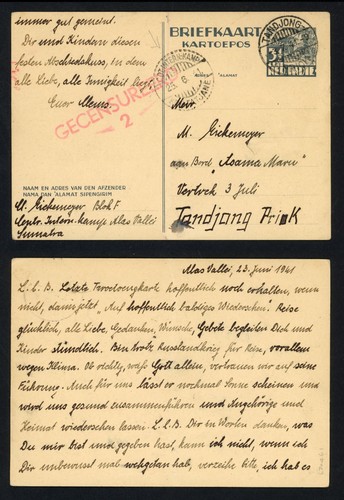 immer gut gemeint.
Dir und Kindern diesen
festen Abschiedskuss, in dem
alle Liebe, alle Innigkeit liegt.
Euer Memo.
GECENSUREERD
2
NAAM EN ADRES VAN DEN AFZENDER
NAMA DAN ALAMAT SIPENGIRIM
M. Eickemeyer Block F
Centr. Intern. Kamp Alas Vallei
Sumatra
BRIEFKAART
KARTOEPOS
ADRES ALAMAT
TANDJONG
3½
NED. INDIE
23 6
Mevr.
M. Eickemeyer
aan Bord "Asama Maru"
Vertrek 3 Juli
Tandjong Priok
Alas Vallei, 23. Juni 1941
L.l.B. Letzte Rorolongkarte hoffentlich noch erhalten, wenn
nicht, dann jetzt „Auf hoffentlich baldiges Wiedersehen". Reise
glücklich, alle Liebe, Gedanken, Wünsche, Gebete begleiten Dich und
Kinder stündlich. Bin trotz Russlandkrieg für Reise, vor allem
wegen Klima. Ob richtig, weiss Gott allein, vertrauen wir auf seine
Führung. Auch für uns lässt er nochmal Sonne scheinen und
wird uns gesund zusammenführen und Angehörige und
Heimat wiedersehen lassen. L.l.B. Dir in Worten danken, was
Du mir bist und gegeben hast, kann ich nicht, wenn ich
Dir unbewusst mal wehgetan hab, verzeihe bitte, ich hab es